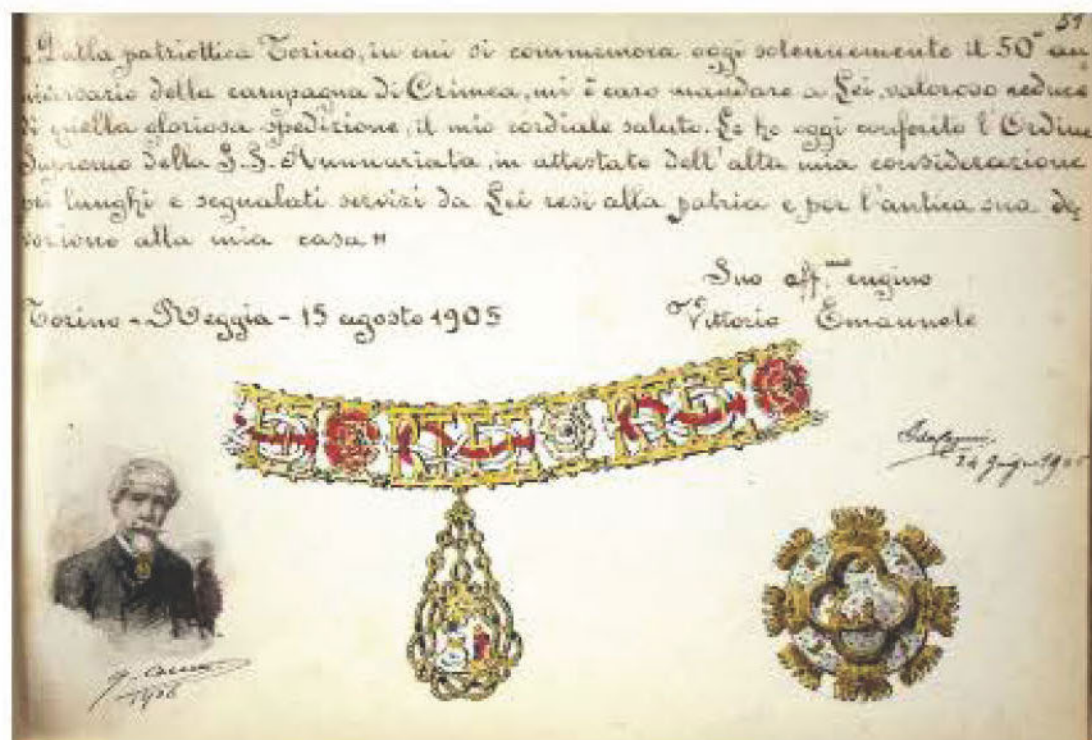 51
„Dalla patriottica Torino, in cui si commemora oggi solennemente il 50° an
niversario della campagna di Crimea, mi è caro mandare a Lei, valoroso reduce
di quella gloriosa spedizione, il mio cordiale saluto. Le ho oggi conferito l'Ordine
Supremo della S.S. Annunziata, in attestato dell'alta mia considerazione
pei lunghi e segnalati servizi da Lei resi alla patria e per l'antica sua de
vozione alla mia casa"
Suo aff.mo cugino
Torino - Reggia - 15 agosto 1905 Vittorio Emanuele
1906
FERT FERT
1906